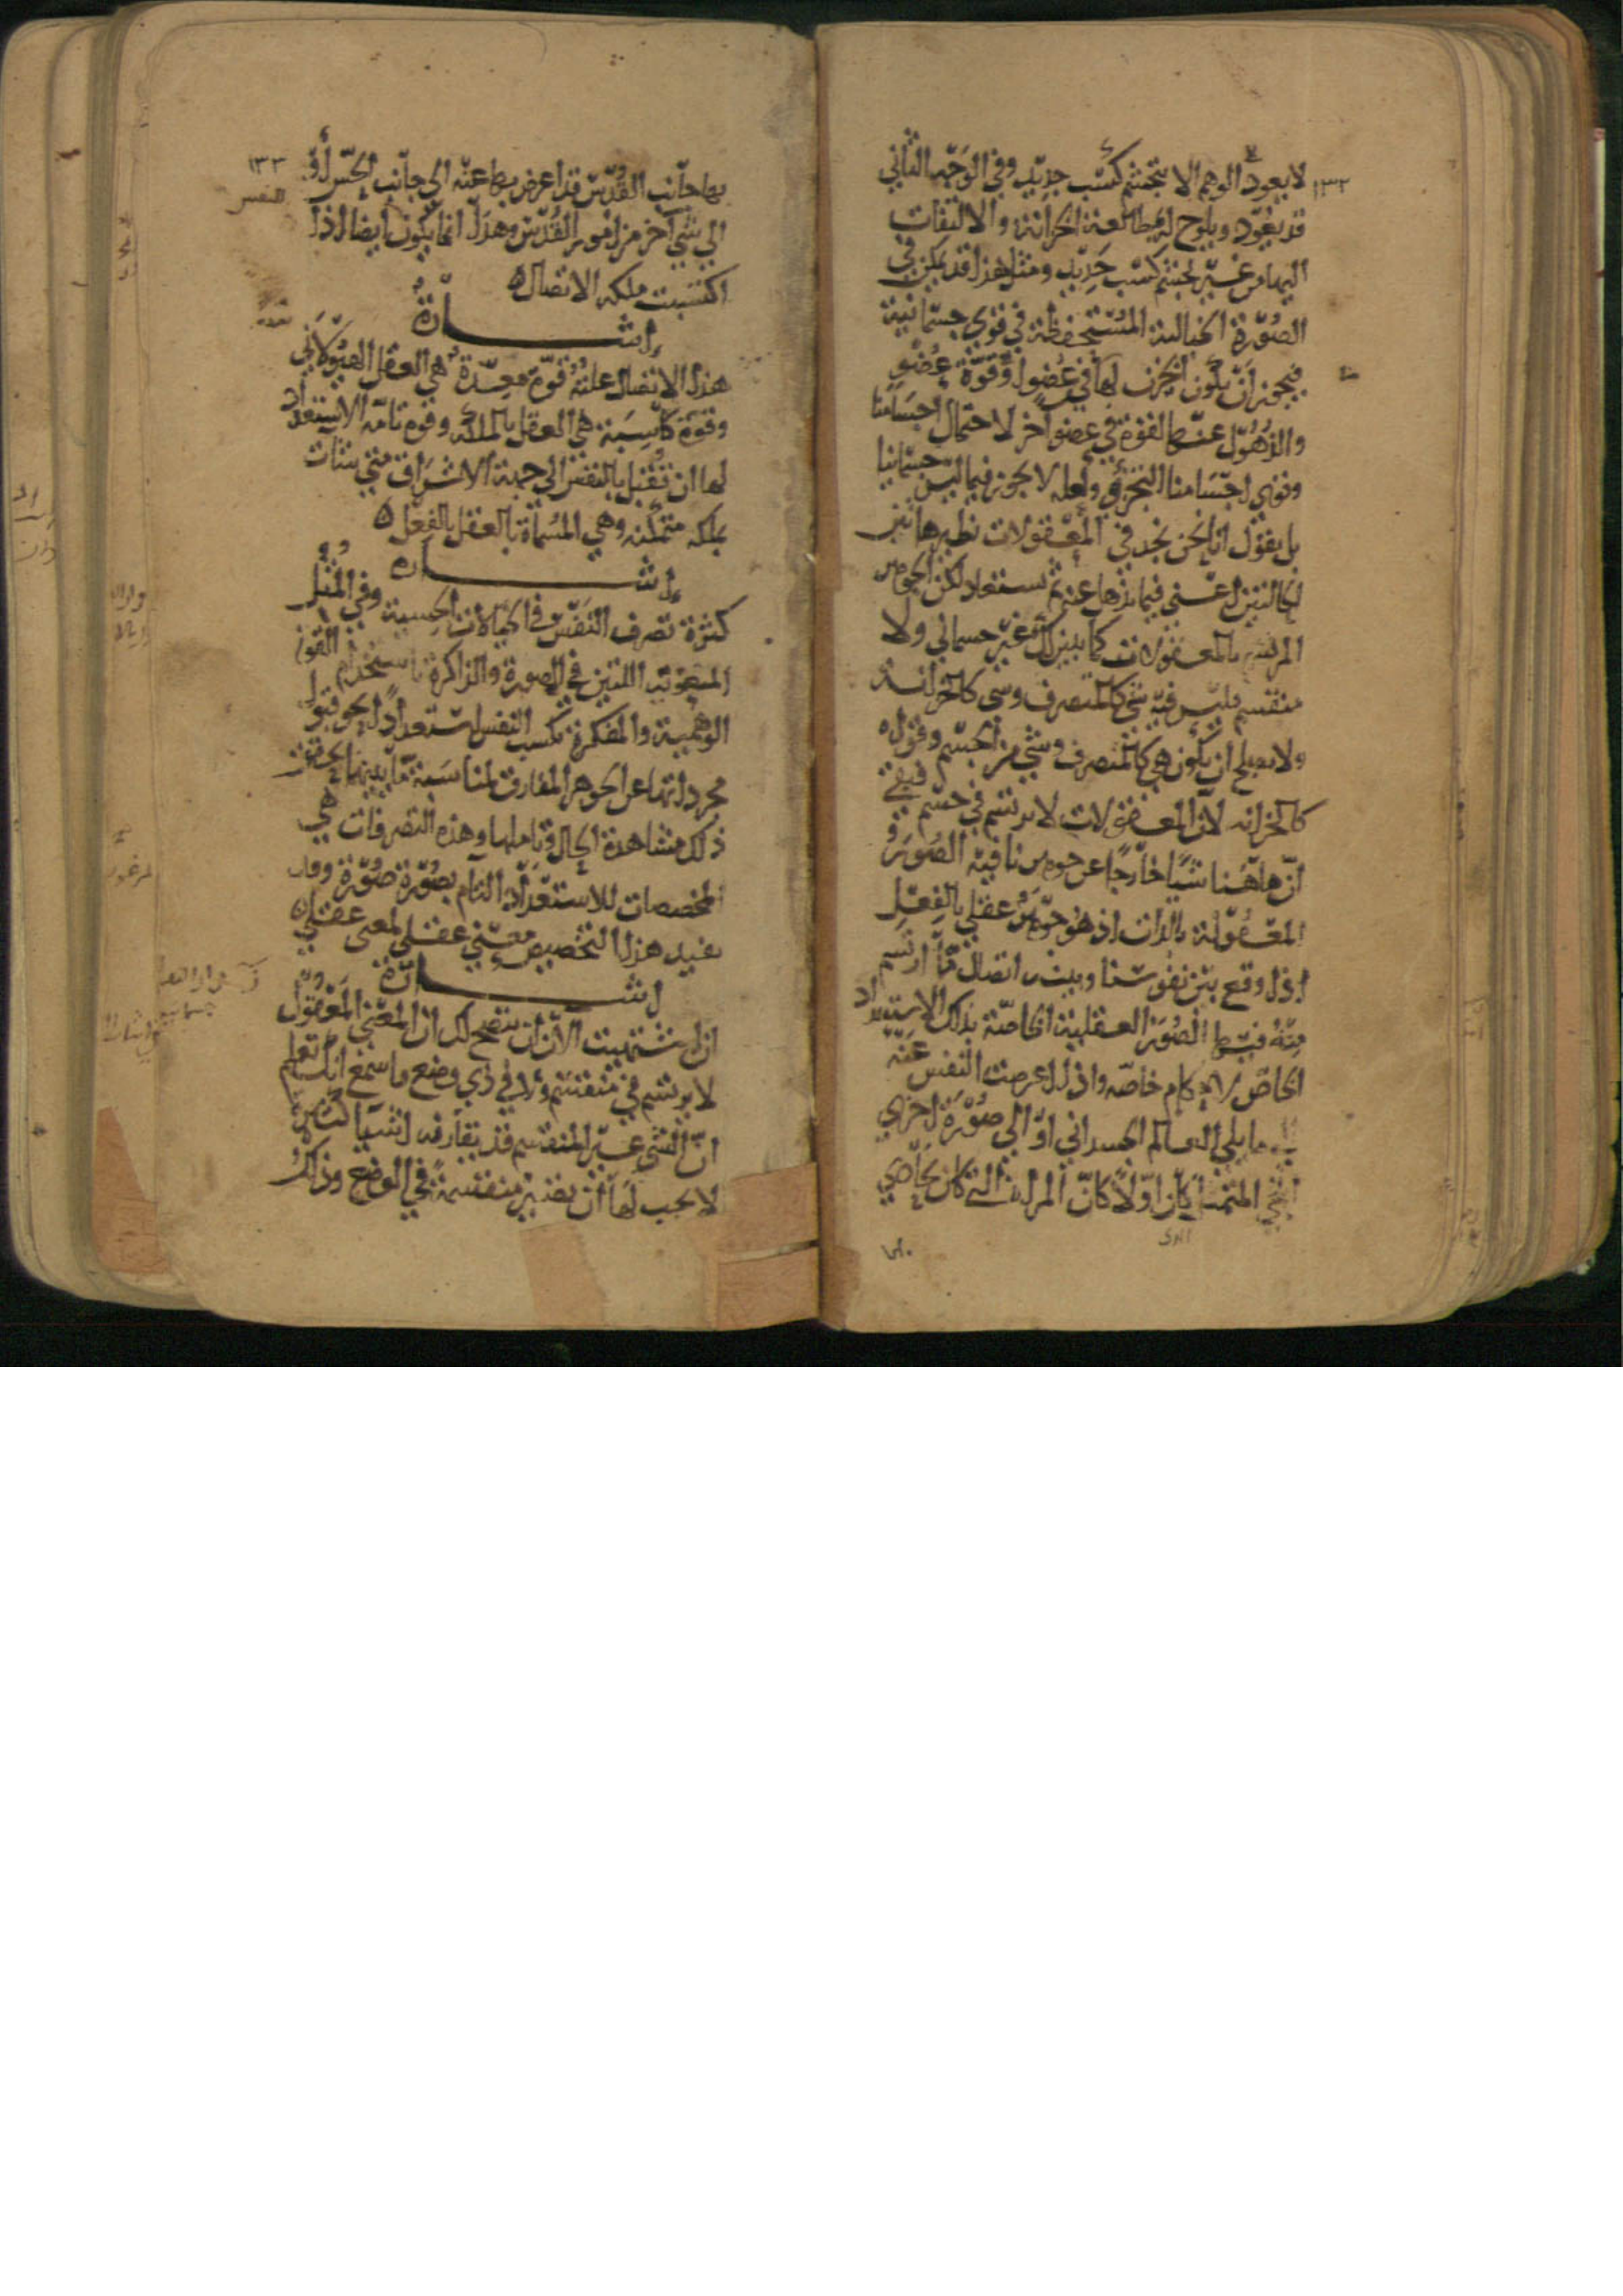 ١٣٢
لا يعود الوهم الا بتجشم كسب جديد وفي الوجه الثاني
قد يعود ويلوح له بمطالعة الخزانة والالتفات
اليها من غير تجشم كسب جديد ومثل هذا قد يمكن في
الصورة الخيالية المستحفظة في قوى جسمانية
فيجوز ان يكون الخزن لها في عضو او قوة عضو
والذهول عنها لقوة في عضو آخر لاحتمال اجسامنا
وقوى اجسامنا التجزي ولعله لا يجوز فيما ليس جسمانيا
بل يقول انا نحن نجد في المعقولات نظير هاتين
الحالتين اعني فيما نذهل عنه ثم نستعاد لكن الجوهر
المرتسم بالمعقولات كما يتبين لك غير جسماني ولا
منقسم فليس فيه شي كالمتصرف وشي كالخزانة
ولا يصلح ان يكون هي كالمتصرف وشي من الجسم وقواه
كالخزانة لان المعقولات لا يرتسم في جسم فبقي
ان هاهنا شيا خارجا عن جوهرنا فيه الصور
المعقولة بالذات اذ هو جوهر عقلي بالفعل
اذا وقع بين نفوسنا وبينه اتصال ما ارتسم
منه فيها الصور العقلية الخاصة بذلك الاستعداد
الخاص لاحكام خاصة واذا اعرضت النفس عنه
الى ما يلي العالم الجسداني او الى صورة اخرى
انمحى المتمثل كان اولا كان المرآة التي كان يحاذي
١٣٣
بها جانب القدس قد اعرض بها عنه الى جانب الحس او
الي شي آخر من امور القدس وهذا انما يكون ايضا اذا
اكتسبت ملكة الاتصال
اشارة
هذا الاتصال علته قوة معدة هي العقل الهيولاني
وقوة كاسبة هي العقل بالملكة وقوة تامة الاستعداد
لها ان تقبل بالنفس الى جهة الاشراق متى شات
بملكة متمكنة وهي المسماة بالعقل بالفعل
اشارة
كثرة تصرف النفس في الخيالات الحسية وفي المثل
المعنوية اللتين في الصورة والذاكرة باستخدام القوة
الوهمية والمفكرة تكسب النفس استعدادا نحو قبول
مجرداتها عن الجوهر المفارق لمناسبة ما بينهما يحقق
ذلك مشاهدة الحال وتاملها وهذه التصرفات هي
المخصصات للاستعداد التام بصورة صورة وقد
يفيد هذا التخصيص معنى عقلي لمعنى عقلي
اشارة
ان اشتهيت الآن ان يتضح لك ان المعنى المعقول
لا يرتسم في منقسم ولا في ذي وضع فاسمع انك تعلم
ان الشي غير المنقسم قد يقارنه اشيا كثيرة
لا يجب لها ان يصير منقسمة في الوضع وذلك